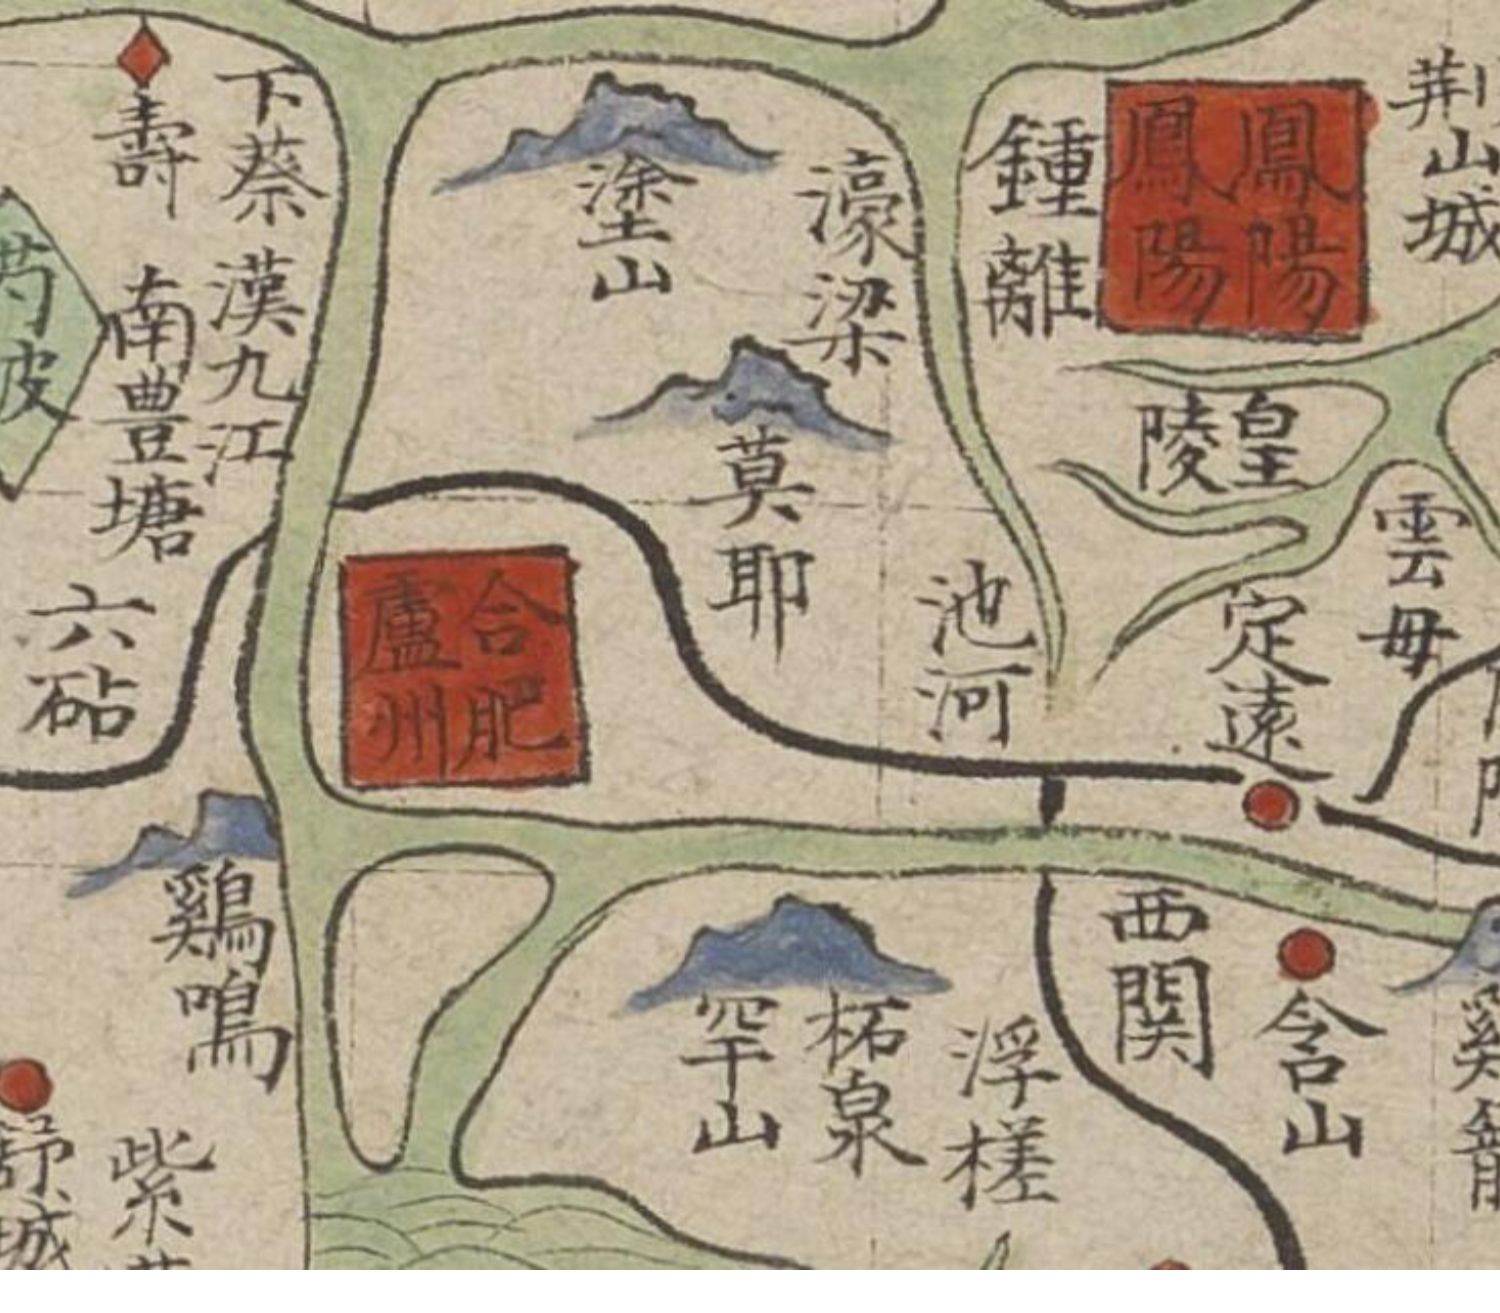 壽
下蔡
漢九江
南豊塘
芍陂
六砧
塗山
濠梁
鍾離
鳳陽
鳳陽
荆山城
莫耶
皇陵
雲母
池河
定遠
合肥
盧州
鷄鳴
罕山
柘泉
浮槎
西関
含山
舒城
紫